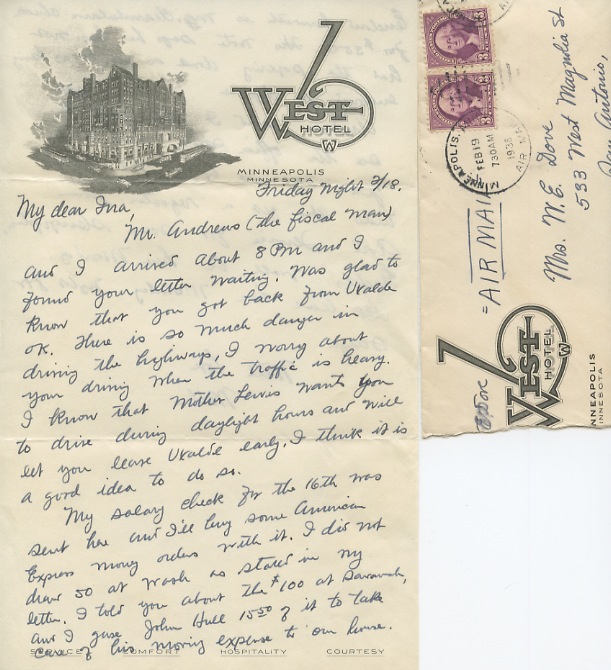 West
HOTEL
W
MINNEAPOLIS
MINNESOTA
Friday night 2/18.
My dear Ina,
Mr. Andrews (the fiscal man)
and I arrived about 8 PM and I
found your letter waiting. Was glad to
know that you got back from Uvalde
OK. There is so much danger in
driving the highways, I worry about
your driving when the traffic is heavy.
I know that Mother Lewis wants you
to drive during daylight hours and will
let you leave Uvalde early. I think it is
a good idea to do so.
My salary check for the 16th was
sent here and I'll buy some American
Express money orders with it. I did not
draw 50 at Wash as stated in my
letter. I told you about the $100 at Savannah,
and I gave John Hull 15.50 of it to take
care of his moving expense to our house.
SERVICE COMFORT HOSPITALITY COURTESY
MINNEAPOLIS,
FEB 19
730 AM
1938
= AIR MAIL
Mrs. W. E. Dove
533 West Magnolia St
San Antonio,
West
HOTEL
W
NNEAPOLIS
INNESOTA